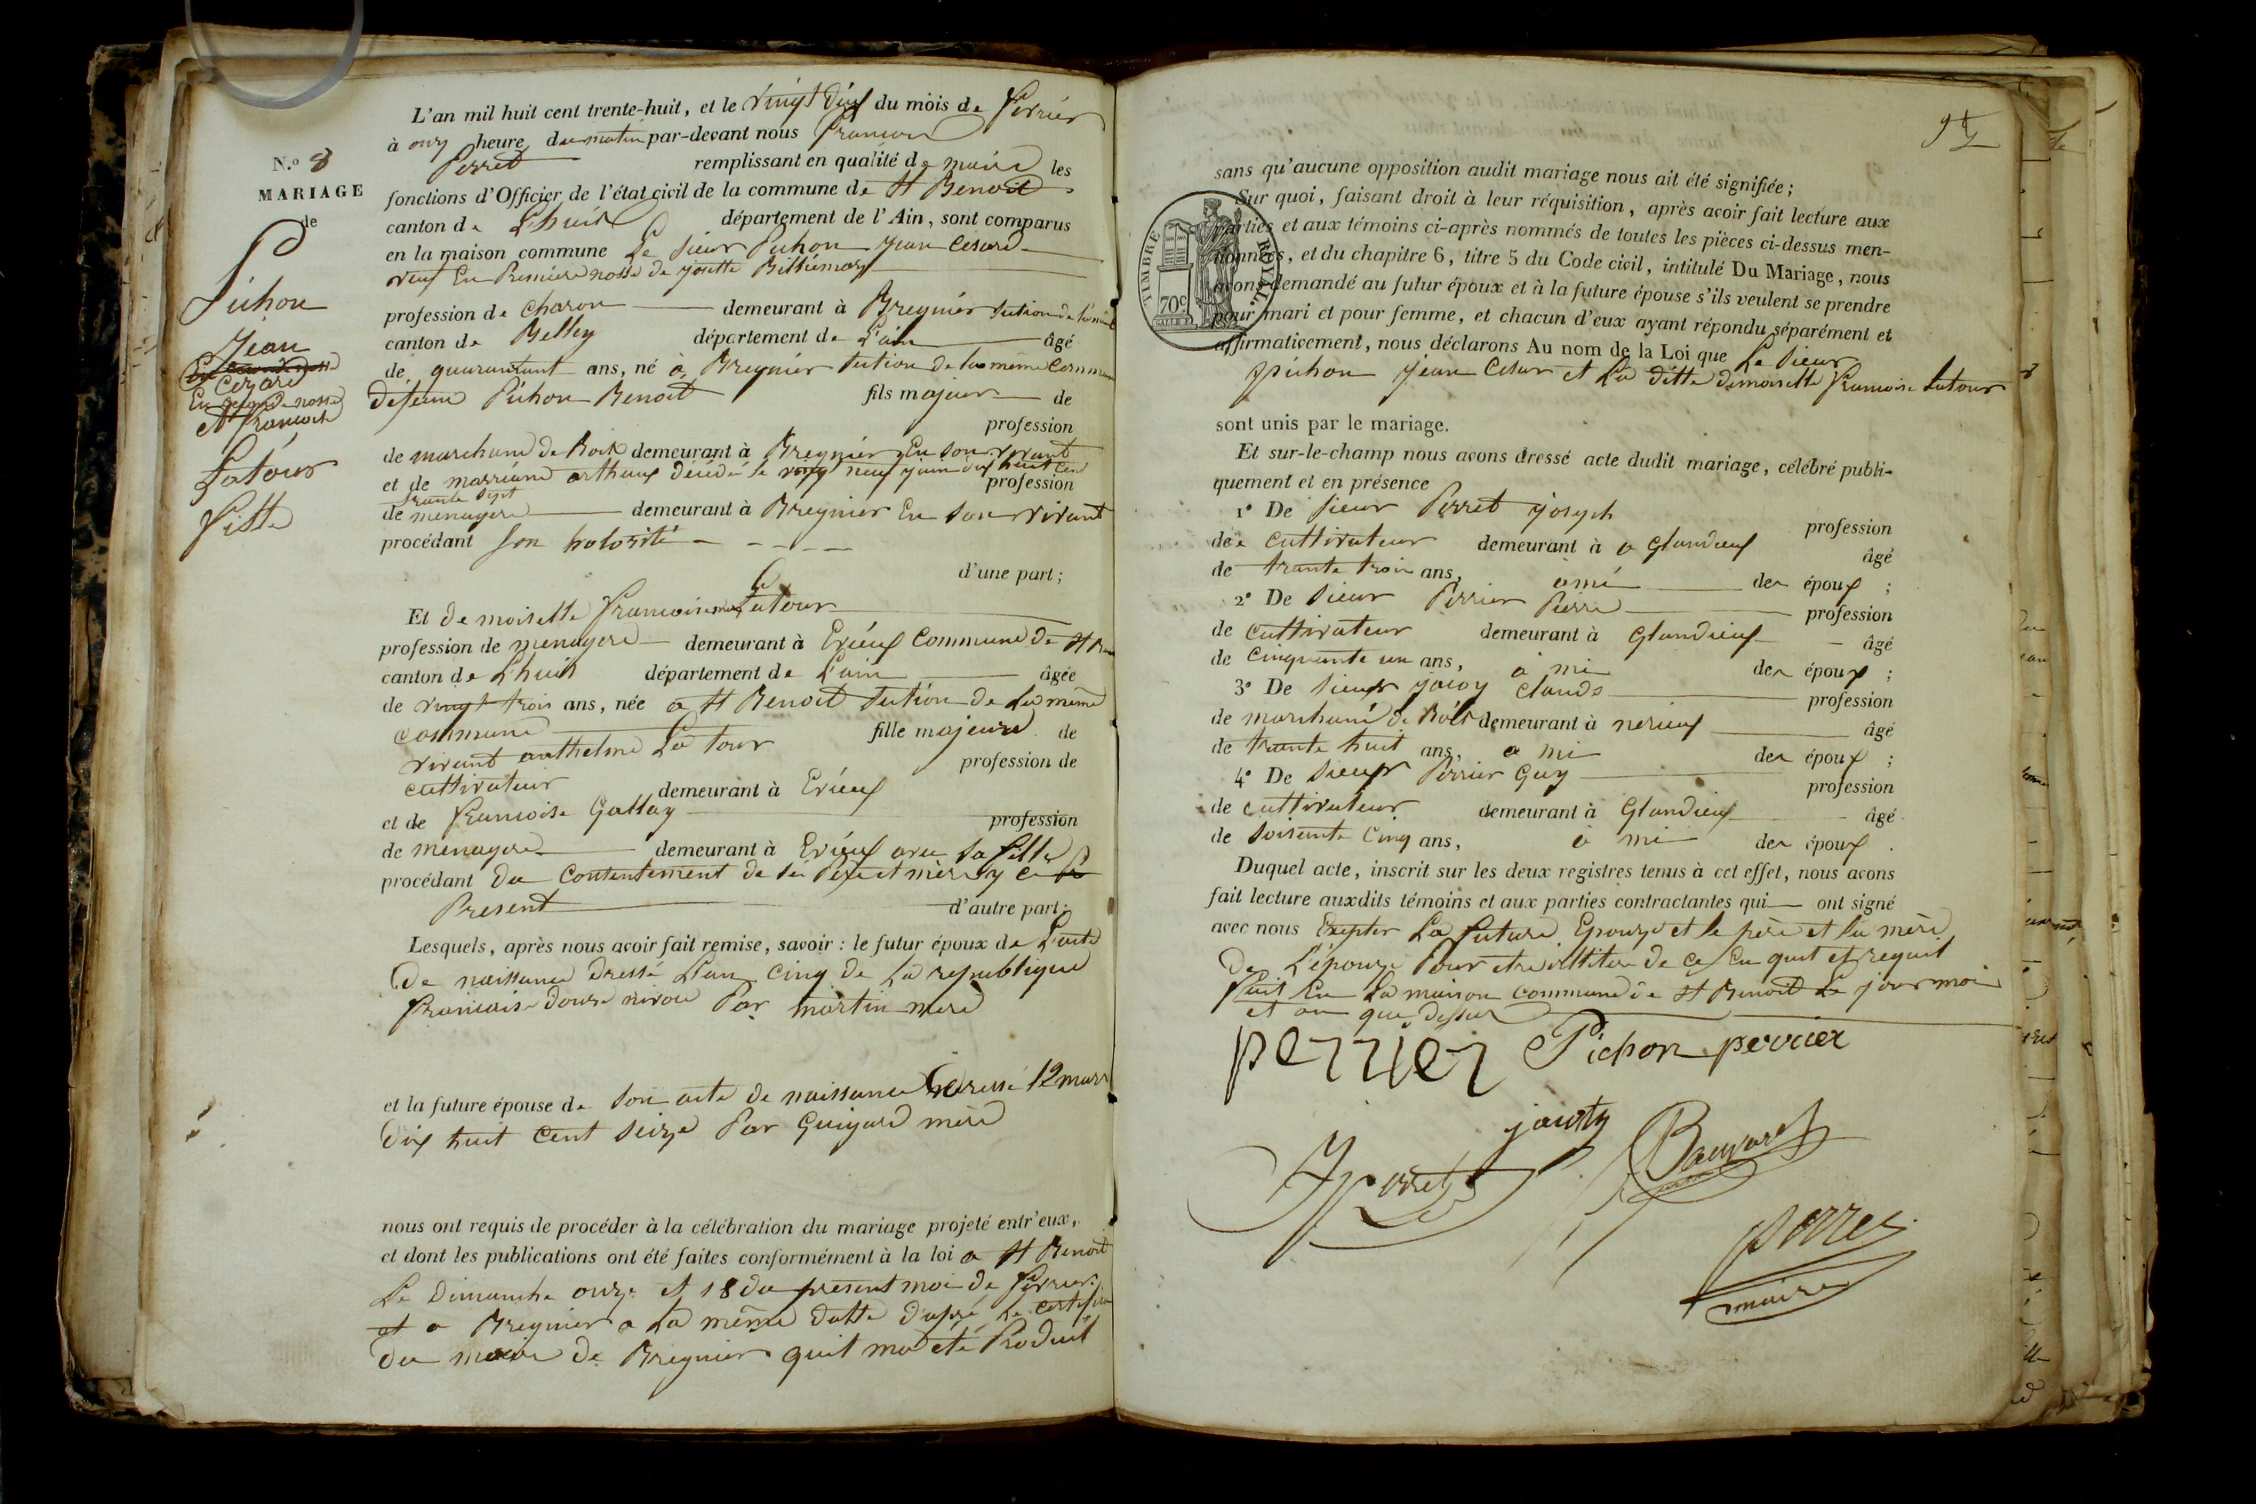 N.° 8
MARIAGE
de
Pichon
Jean
Cézard
En seconde nosse
et francoise
Latour
fille
L'an mil huit cent trente-huit, et le vingt deux du mois de fevrier
à onze heure du matin par-devant nous francois
Perret remplissant en qualité de maire les
fonctions d'Officier de l'état civil de la commune de St Benoit
canton de Lhuis département de l'Ain, sont comparus
en la maison commune Le sieur Pichon Jean Cesard
veuf En Premiere nosse de josette
profession de charon demeurant à Bregnier
canton de Belley département de L'ain âgé
de quarantunt ans, né à Bregnier section de la même commune
Pichon Benoit fils majeur de
profession
de marchand de Bois demeurant à Bregnier En son vivant
et de marriane arthaud décédé le neuf juin dix huit cent
trante sept profession
de menagere demeurant à Bregnier En son vivant
procédant
d'une part;
Et demoiselle francoise Latour
profession de menagere demeurant à Erieux Commune de St Ben
canton de Lhuis département de L'ain âgée
de vingt trois ans, née a St Benoit section de La même
commune fille majeure de
vivant anthelme La tour profession de
cultivateur demeurant à Erieux
et de francoise Gallay profession
de menagere demeurant à Erieux avec sa fille
procédant du contentement de sei Pere et mère y
Present d'autre part;
Lesquels, après nous avoir fait remise, savoir : le futur époux de L'acte
De naissance dressé L'an cinq de La republique
francaise douze nivou Par martin mere
et la future épouse de son acte de naissance dressé 12 mars
Dix huit cent seize Par Guigard mère
nous ont requis de procéder à la célébration du mariage projeté entr'eux,
et dont les publications ont été faites conformément à la loi a St Benoit
Le Dimanche onze et 18 du present moi de fevrier
et a Bregnier a La même datte d'apré Le certifica
du maire de Bregnier quil ma eté Produit
sans qu'aucune opposition audit mariage nous ait été signifiée;
TIMBRE ROYAL
70 c
Sur quoi, faisant droit à leur réquisition, après avoir fait lecture aux
parties et aux témoins ci-après nommés de toutes les pièces ci-dessus men-
tionnées, et du chapitre 6, titre 5 du Code civil, intitulé Du Mariage, nous
avons demandé au futur époux et à la future épouse s'ils veulent se prendre
pour mari et pour femme, et chacun d'eux ayant répondu séparément et
affirmativement, nous déclarons Au nom de la Loi que Le sieur
pichon jean Cesar et La ditte demoiselle francoise Latour
sont unis par le mariage.
Et sur-le-champ nous avons dressé acte dudit mariage, célébré publi-
quement et en présence
1° De sieur Perret joseph profession
de cultivateur demeurant à a Glandieux âgé
de trante trois ans, ami des époux ;
2° De sieur Perrier Pierre profession
de cultivateur demeurant à Glandieux âgé
de cinquante un ans, a mi des époux ;
3° De sieur jacoy Claude profession
de marchand de Bois demeurant à nerieux âgé
de trante huit ans, a mi des époux ;
4° De sieur Perrier Guy profession
de cultivateur demeurant à Glandieux âgé
de soisente cinq ans, a mi des époux.
Duquel acte, inscrit sur les deux registres tenus à cet effet, nous avons
fait lecture auxdits témoins et aux parties contractantes qui ont signé
avec nous Exepter La future Epouze et le père et la mère
De L'épouze Pour etre illitere de ce En quit et requit
fait En La maison commune de St Benoit Le jour moi
et an que Dessus
perrier Pichon perrier
Perret
maire